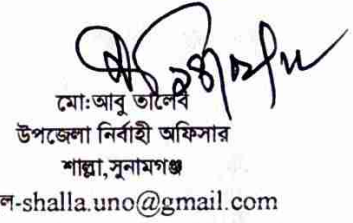 মো:আবু তালেব
উপজেলা নির্বাহী অফিসার
শাল্লা,সুনামগঞ্জ
ল-shalla.uno@gmail.com